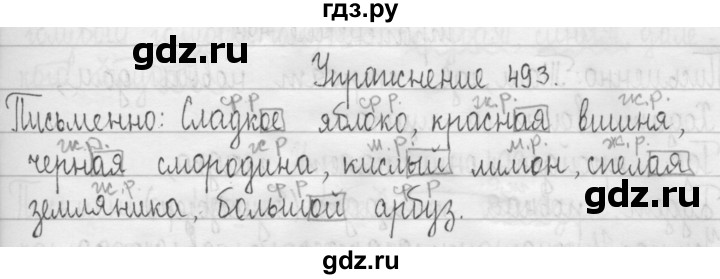 гдз.ру
gdz.ru
Упражнение 493.
ср.р. ср.р. ж.р. ж.р.
Письменно: Сладкое яблоко, красная вишня,
ж.р. ж.р. м.р. м.р. ж.р.
черная смородина, кислый лимон, спелая
ж.р. ср.р. ср.р.
земляника, большой арбуз.
gdz.ru
gdz.ru